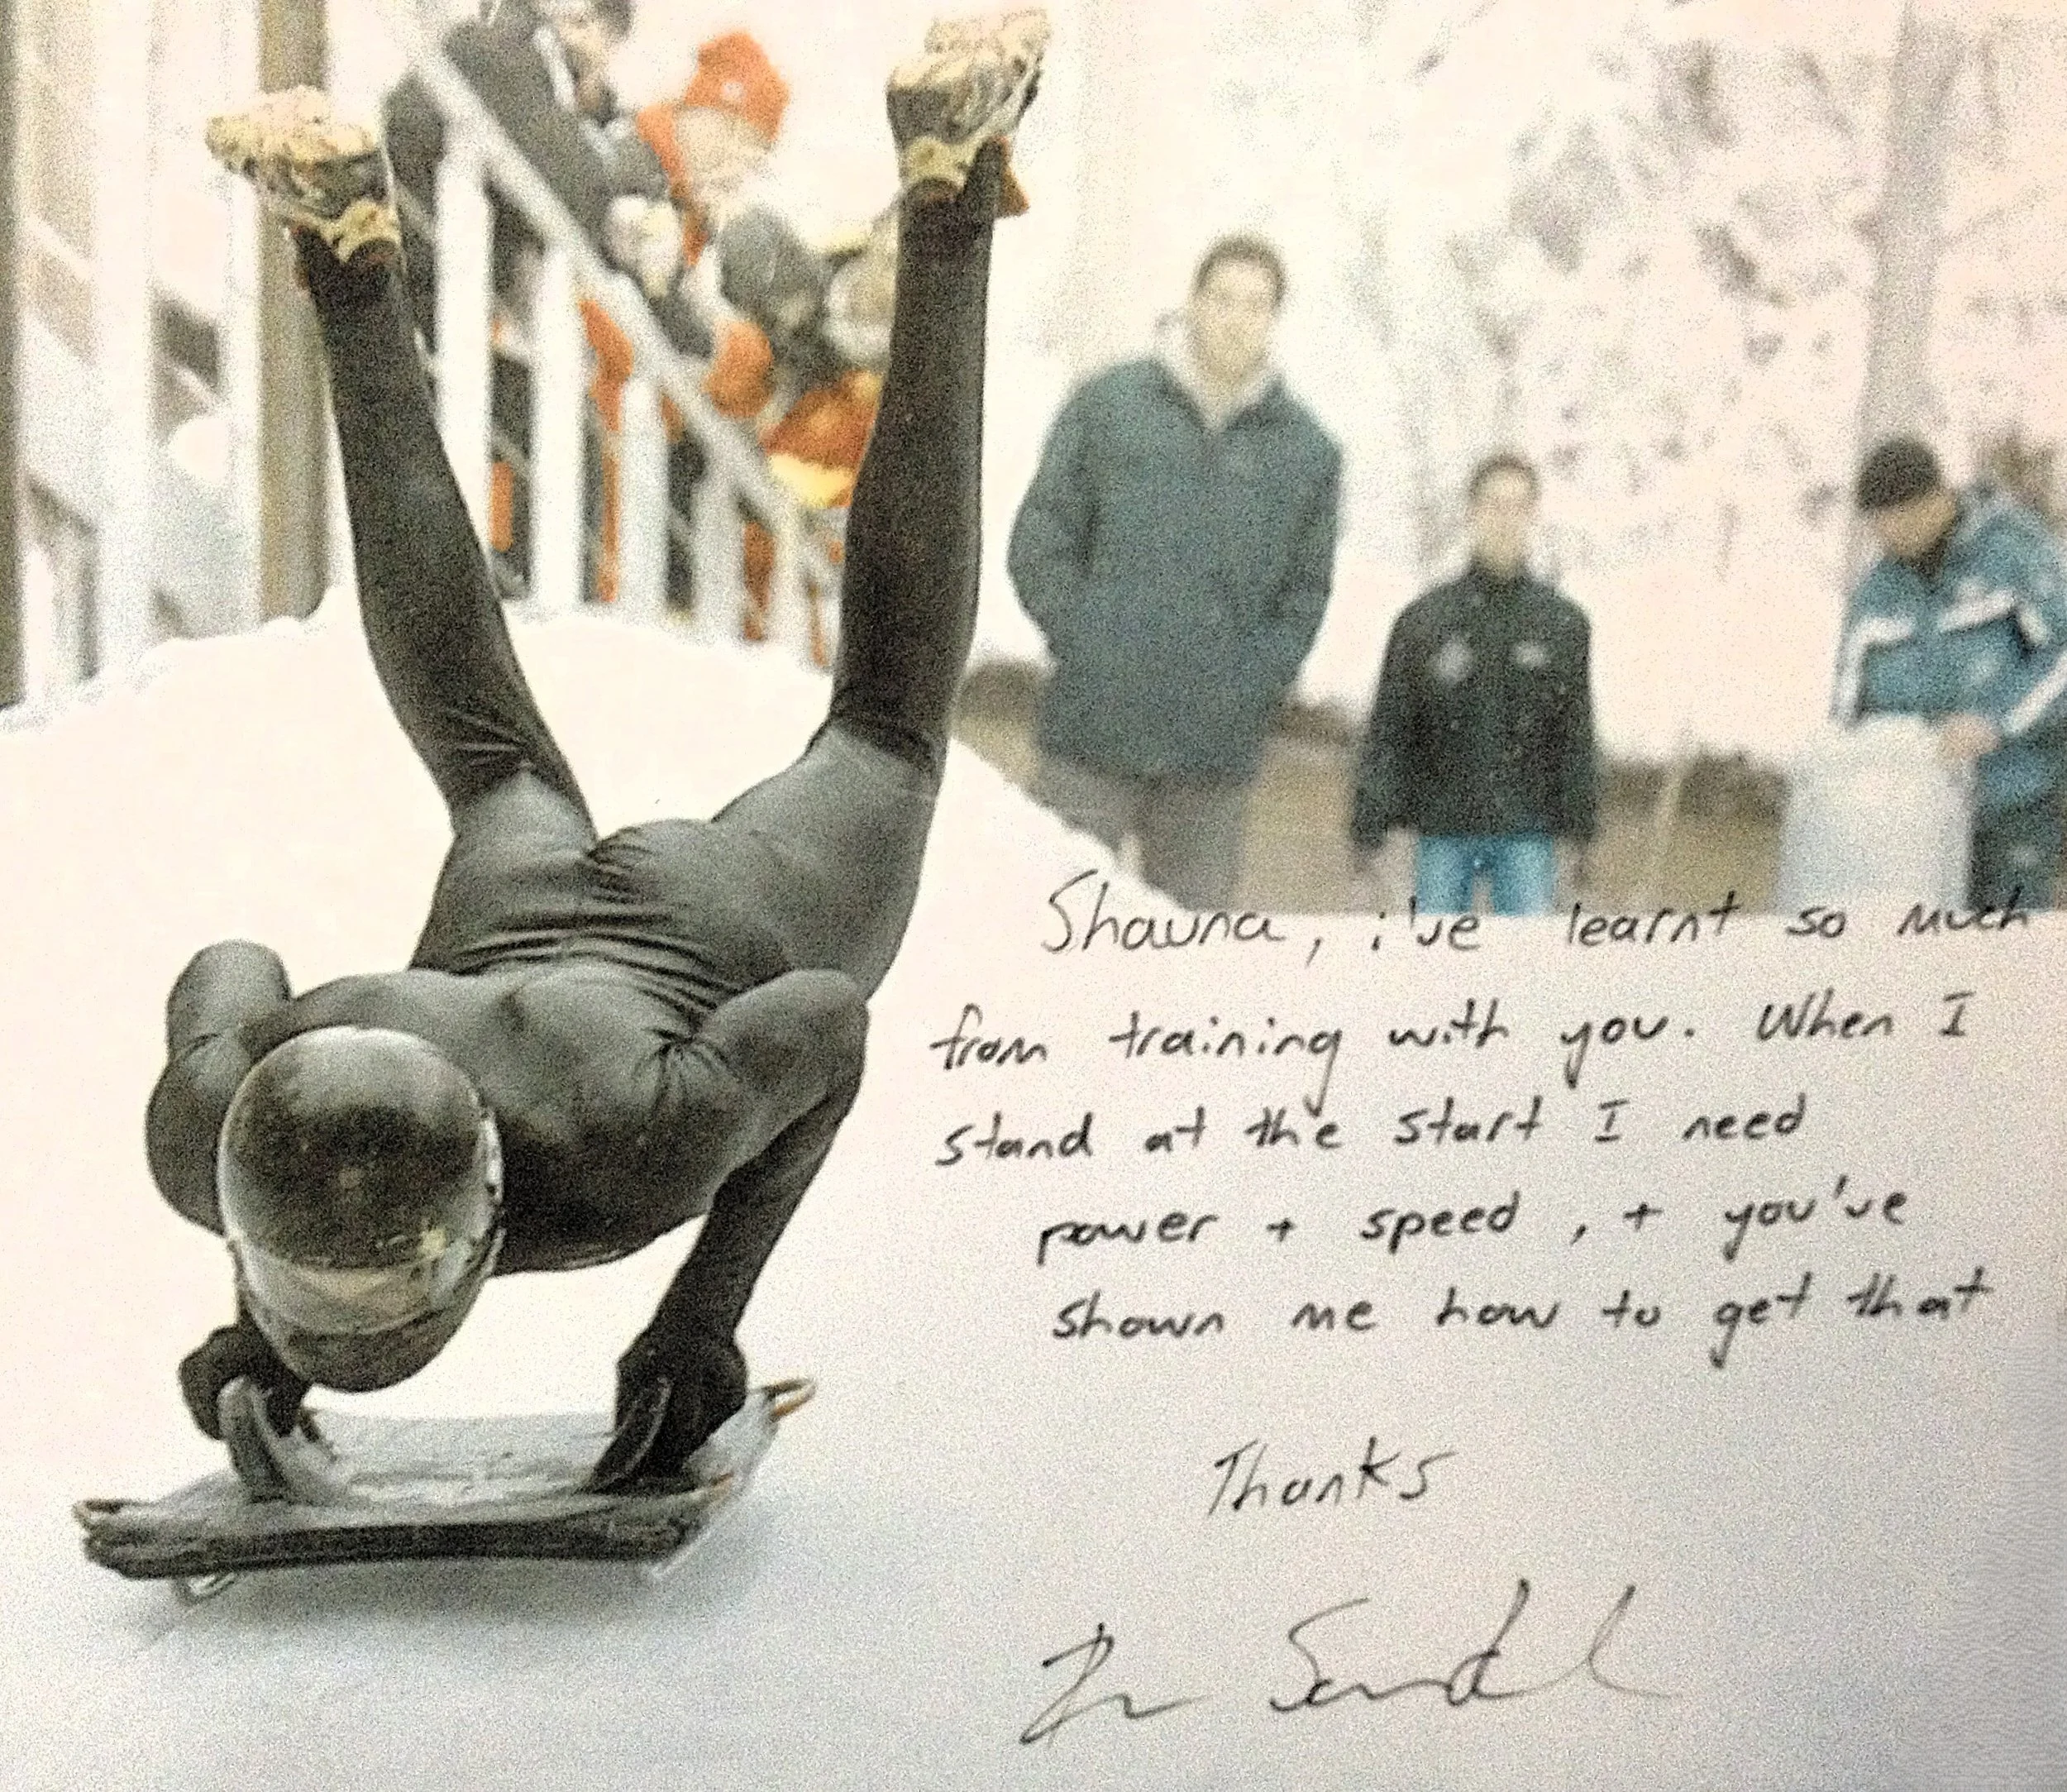 Shauna, i've learnt so much
from training with you. When I
stand at the start I need
power + speed, + you've
shown me how to get that
Thanks